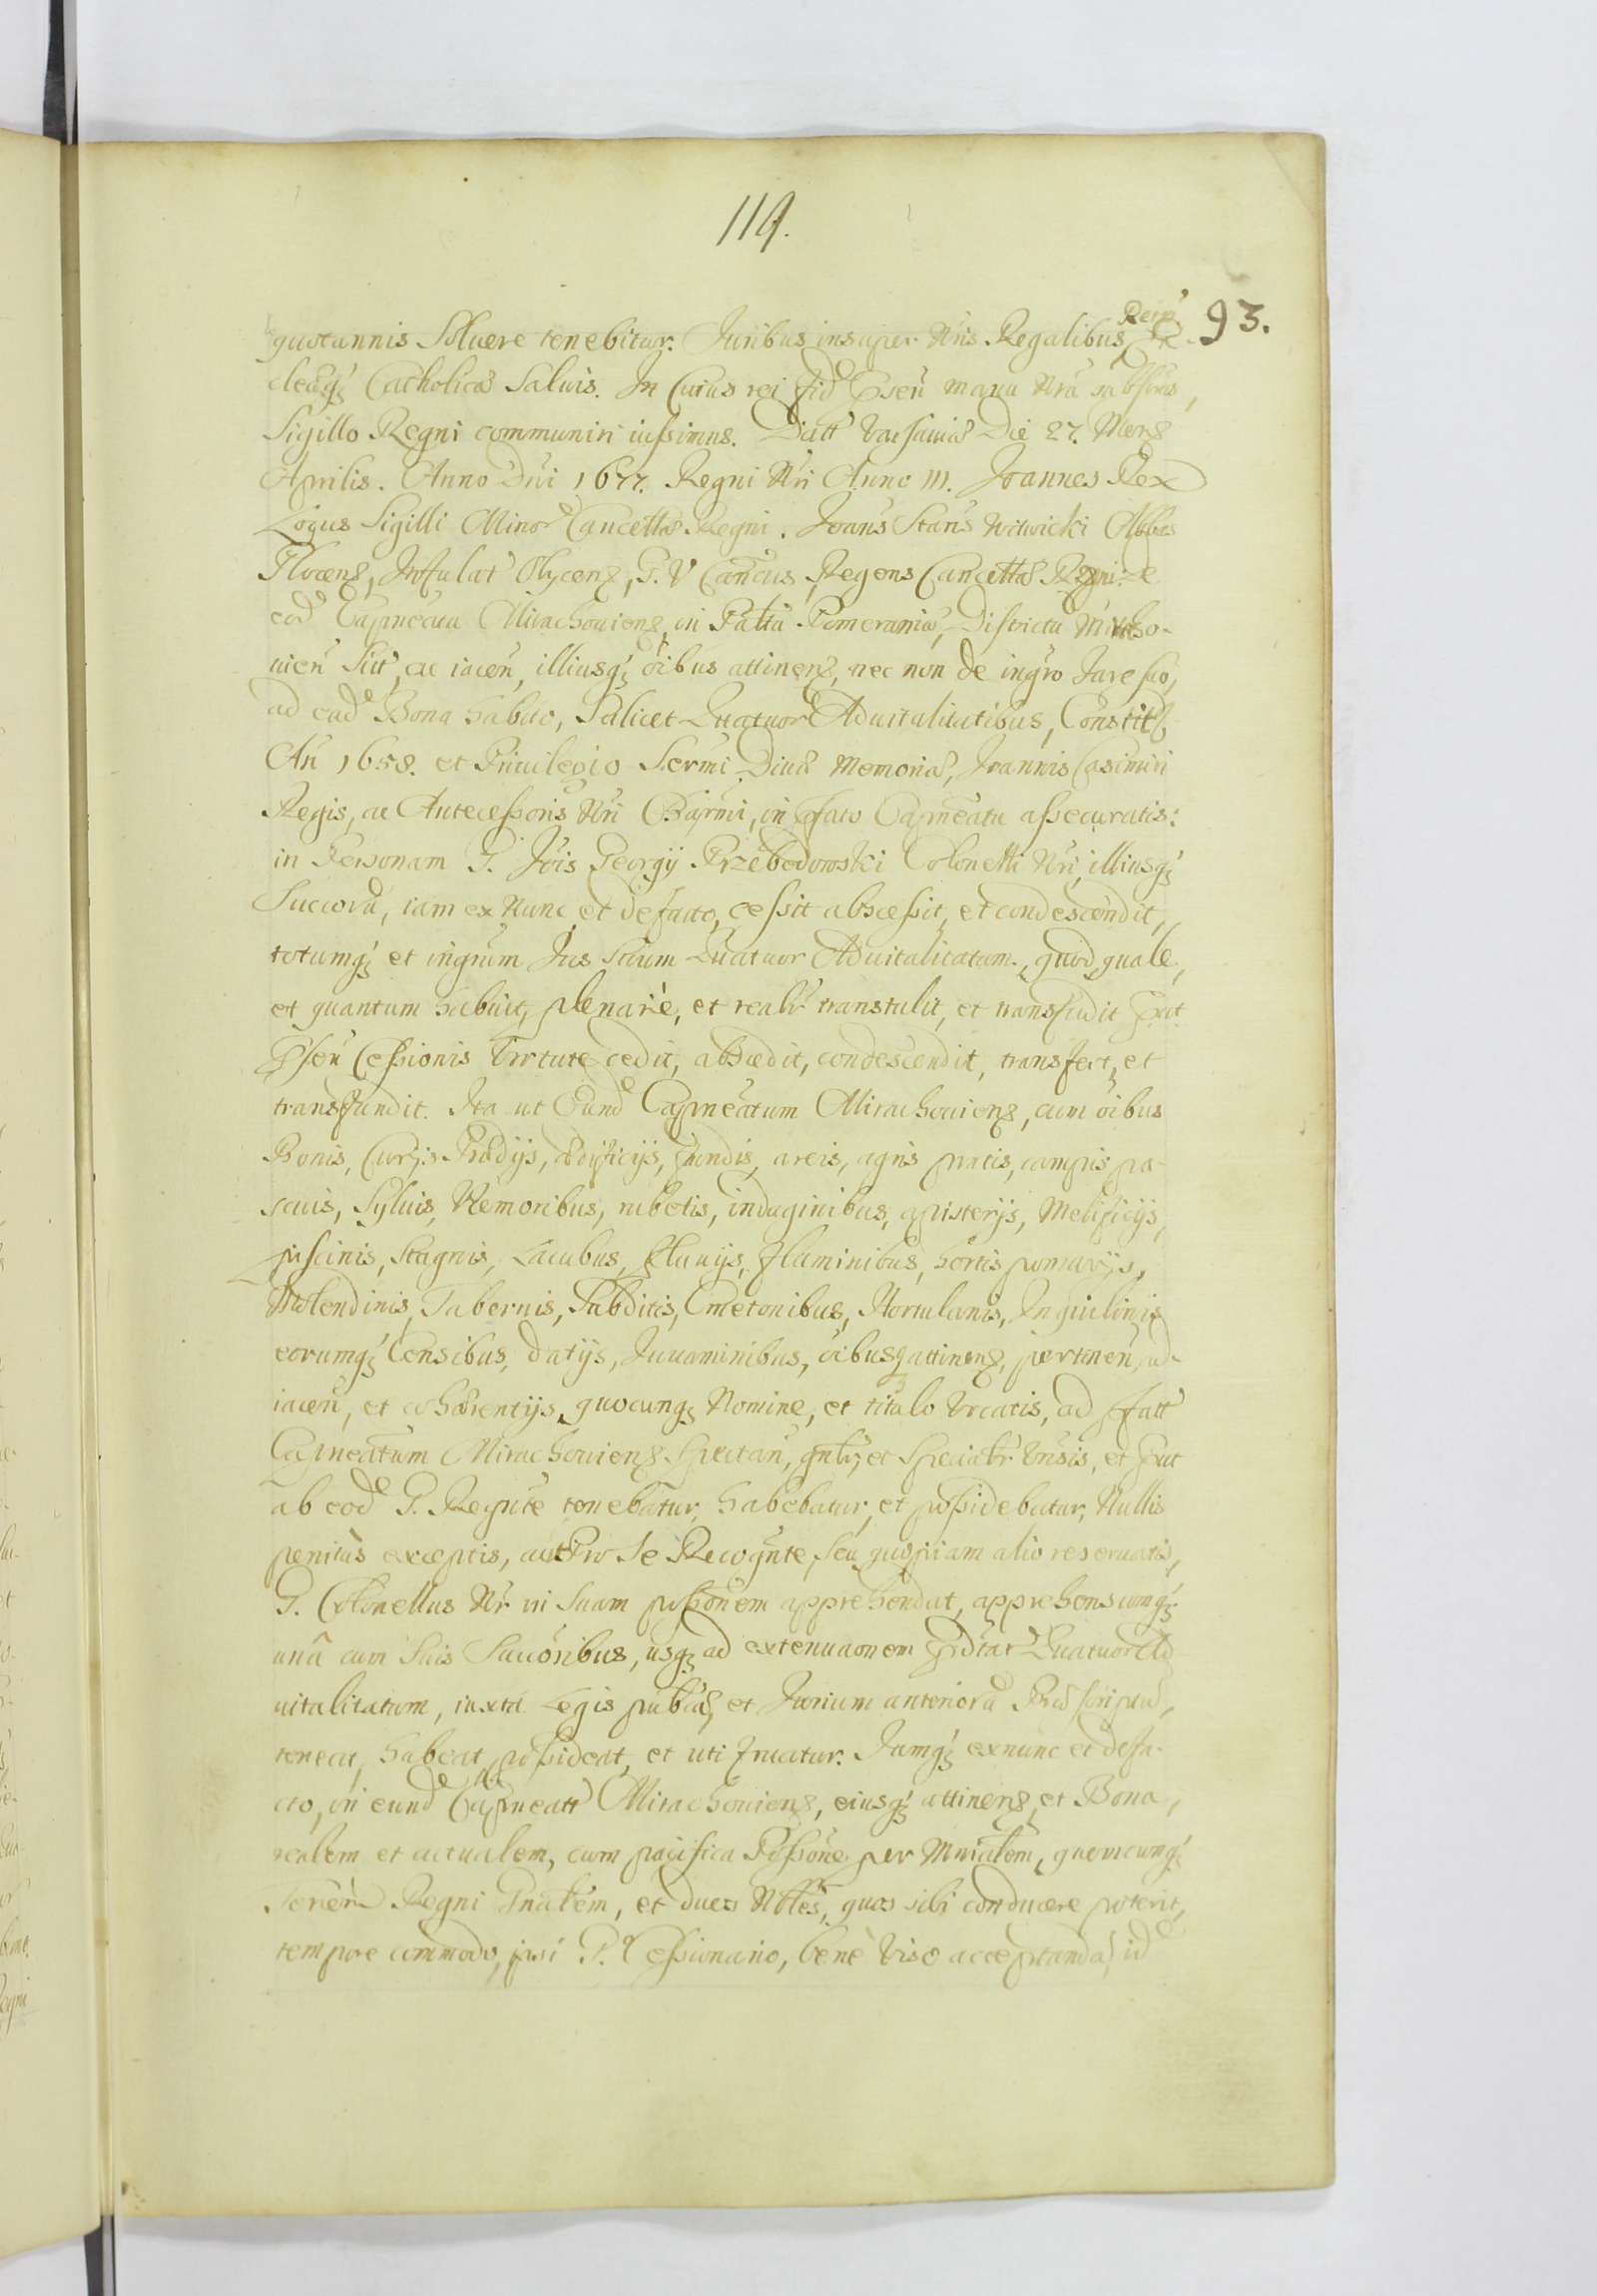 119.
93.
quotannis Soluere tenebitur. Juribus insuper Nris Regalibus, Reip. Ec-
cleaeq; Catholicae Saluis. In Cuius rei fid Psen manu Nra subscrus,
Sigillo Regni communiri iussimus. Datt Varsauiae Die 27. Mens
Aprilis. Anno Dni 1677. Regni Nri Anno III. Joannes Rex
Locus Sigilli Minor Cancellae Regni. Joans Stans Witwicki Abbas
Plocens, Infulat Olycens, G. V Cancus, Regens Cancellae Regni. e
eod Capneatu Mirachouiens, in Palta Pomeraniae, Districtu Miracho-
uien Sit, ac iacen, illiusq; oibus attinens, nec non de ingro Jure suo,
ad ead Bona habito, Scilicet Quatuor Aduitalitatibus, Constit
An 1658. et Priuilegio Sermi Diuae Memoriae, Joannis Casimiri
Regis, ac Antecessoris Nri Charmi, in Pfato Capneatu assecuratis:
in Personam G. Jois Georgij Przebedowski Colonelli Nri, illiusq;
Succorū, iam ex Nunc, et defacto, cessit abscessit, et condescendit,
totumq; et ingrum Jus Suum Quatuor Aduitalitatum, quod, quale,
et quantum habuit, plenariè, et realr transtulit, et transfudit Put
Psen Cessionis Virtute cedit, abscedit, condescendit, transfert, et
transfundit. Ita ut Eund Capneatum Mirachouiens, cum oibus
Bonis, Curijs Praedijs, aedificijs, fundis, areis, agris pratis, campis pa-
scuis, Syluis, Nemoribus, rubetis, indaginibus, apisterijs, Melificijs,
piscinis, Stagnis, Lacubus, fluuijs, fluminibus, hortis pomarijs,
Molendinis, Tabernis, Subditis, Cmetonibus, Hortulanis, Inquilinis
eorumq; Censibus, Datijs, Juuaminibus, oibusq attinens, pertinen, ad-
iacen, et cohaerentijs, quocunq; Nomine, et titulo Vocatis, ad Pfatt
Capneatum Mirachouiens Spectan, gnlr, et Specialr Vnsis, et Put
ab eod G. Regnte tenebatur, habebatur, et possidebatur, Nullis
penitus exceptis, aut Pro Se Recognte, seu quopiam alio reseruatis,
G. Colonellus Nr in Suam possonem apprehendat, apprehensumq;
unâ cum Suis Succoribus, usq; ad extenuaonem Pdttar Quatuor Ad
uitalitatum, iuxta Legis publicae, et Jurium anteriorū Praescriptum,
teneat, habeat, possideat, et uti fruatur. Jamq; exnunc et defa-
cto, in eund Capneatt Mirachouiens, eiusq; attinens, et Bona,
realem et actualem, cum pacifica Possone per Mnialem, quemcunq;
Regni Gnalem, et duos Nbles, quos sibi conducere poterit,
tempore commodo, ipsi G. Cessionario, benè Viso acceptanda, id